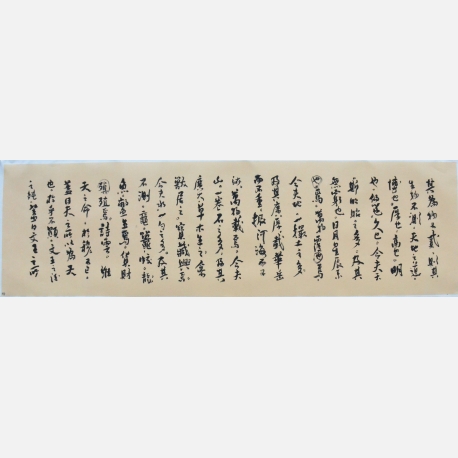 其為物不貳則其
生物不測天地之道
博也厚也高也明
也悠也久也今夫天
斯昭昭之多及其
無窮也日月星辰系
焉萬物覆焉
今夫地一撮土之多
及其廣厚載華岳
而不重振河海而不
洩萬物載焉今夫
山一卷石之多及其
廣大草木生之禽
獸居之寶藏興焉
今夫水一勺之多及其
不測黿鼉蛟龍
魚鱉生焉貨財
殖焉詩雲維
天之命於穆不已
蓋曰天之所以為天
也於乎不顯文王之德
之純蓋曰文王之所